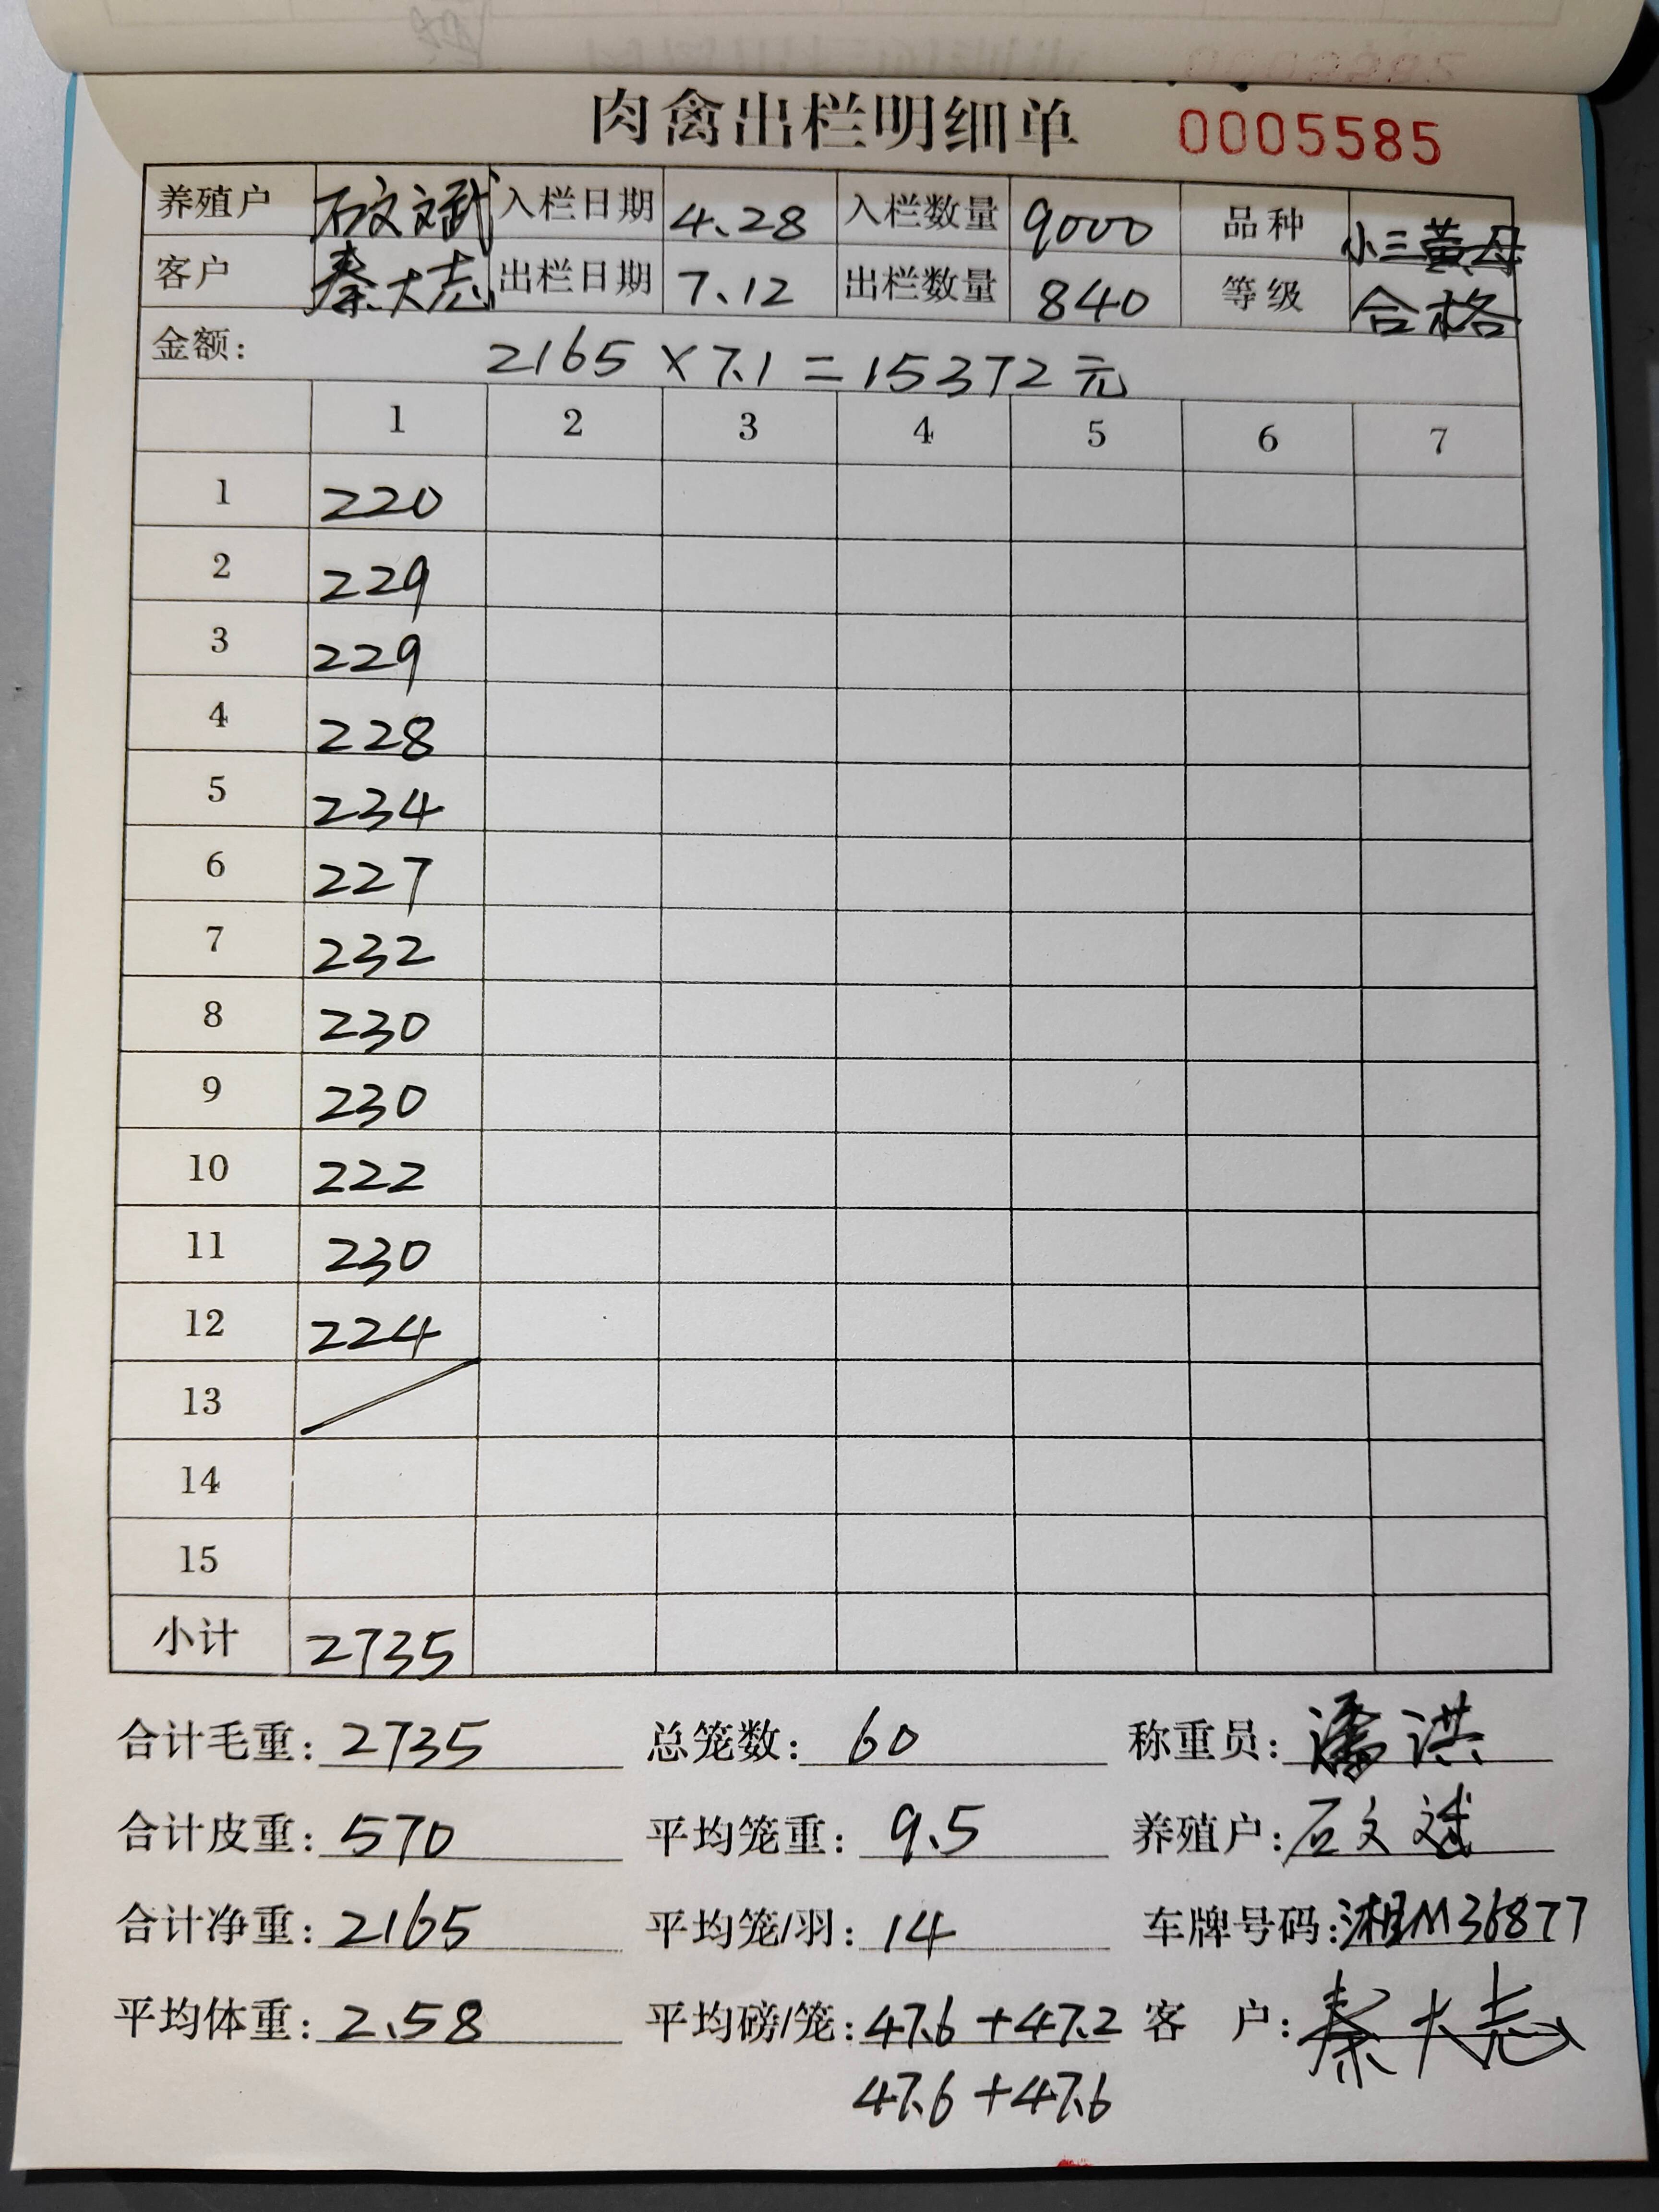 肉禽出栏明细单 0005585
养殖户 石文斌 入栏日期 4.28 入栏数量 9000 品种 小三黄母
客户 秦大志 出栏日期 7.12 出栏数量 840 等级 合格
金额: 2165×7.1=15372元
1 2 3 4 5 6 7
1 220
2 229
3 229
4 228
5 234
6 227
7 232
8 230
9 230
10 222
11 230
12 224
13
14
15
小计 2735
合计毛重: 2735 总笼数: 60 称重员: 潘洪
合计皮重: 570 平均笼重: 9.5 养殖户: 石文斌
合计净重: 2165 平均笼/羽: 14 车牌号码: 湘M36877
平均体重: 2.58 平均磅/笼: 47.6+47.2 客 户: 秦大志
47.6+47.6